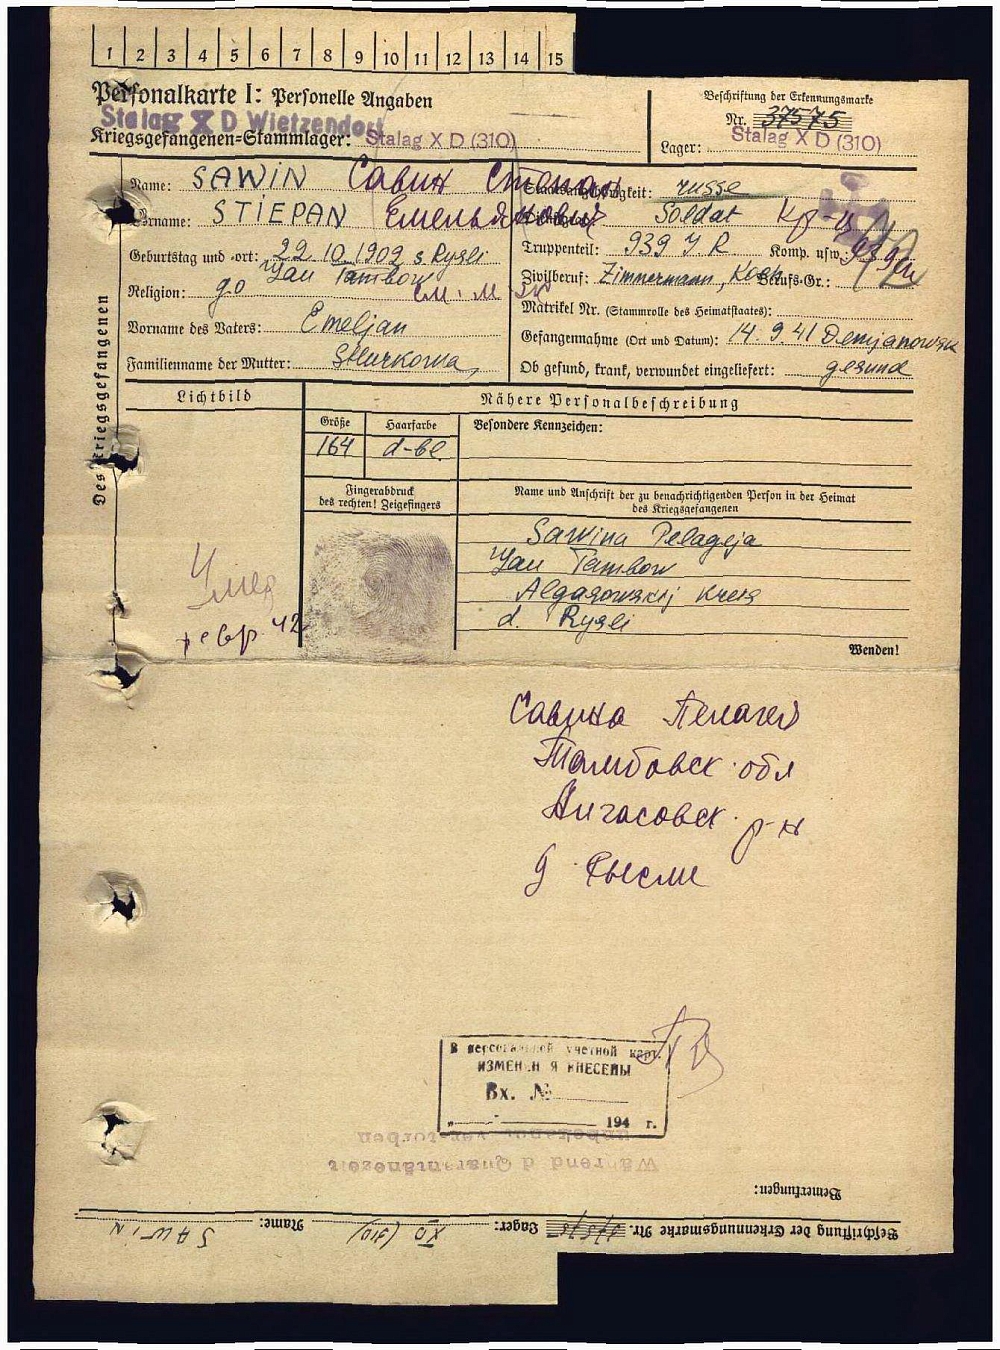 1 2 3 4 5 6 7 8 9 10 11 12 13 14 15
Personalkarte I: Personelle Angaben
Stalag X D Wietzendorf
Kriegsgefangenen-Stammlager: Stalag X D (310)
Beschriftung der Erkennungsmarke
Nr. 37575
Lager: Stalag X D (310)
Des Kriegsgefangenen
Name: SAWIN Савин Степан
Vorname: STIEPAN Емельянович
Geburtstag und -ort: 22.10.1902 s Rysli
Jau Tambow
Religion: go
Vorname des Vaters: Emeljan
Familienname der Mutter:
Staatsangehörigkeit: russe
Soldat
Truppenteil: 939 J R Komp. usw.:
Zivilberuf: Zimmermann, Koch Berufs-Gr.:
Matrikel Nr. (Stammrolle des Heimatstaates):
Gefangennahme (Ort und Datum): 14.9.41 Demjanowsk
Ob gesund, krank, verwundet eingeliefert: gesund
Lichtbild
Nähere Personalbeschreibung
Größe Haarfarbe Besondere Kennzeichen:
164 d-bl.
Fingerabdruck
des rechten! Zeigefingers
Name und Anschrift der zu benachrichtigenden Person in der Heimat
des Kriegsgefangenen
Sawina Pelageja
Jau Tambow
Algasowskij Kreis
d. Rysli
Умер
февр 42
Wenden!
Савина Пелагея
Тамбовск. обл
Алгасовск. р-н
д. Рысли
В персональной учетной карт.
ИЗМЕНЕНИЯ ВНЕСЕНЫ
Вх. №
194 г.
unbekannt verstorben
Während d Quarantänezeit
Bemerkungen:
Beschriftung der Erkennungsmarke Nr. 37575 Lager: XD (310) Name: SAWIN